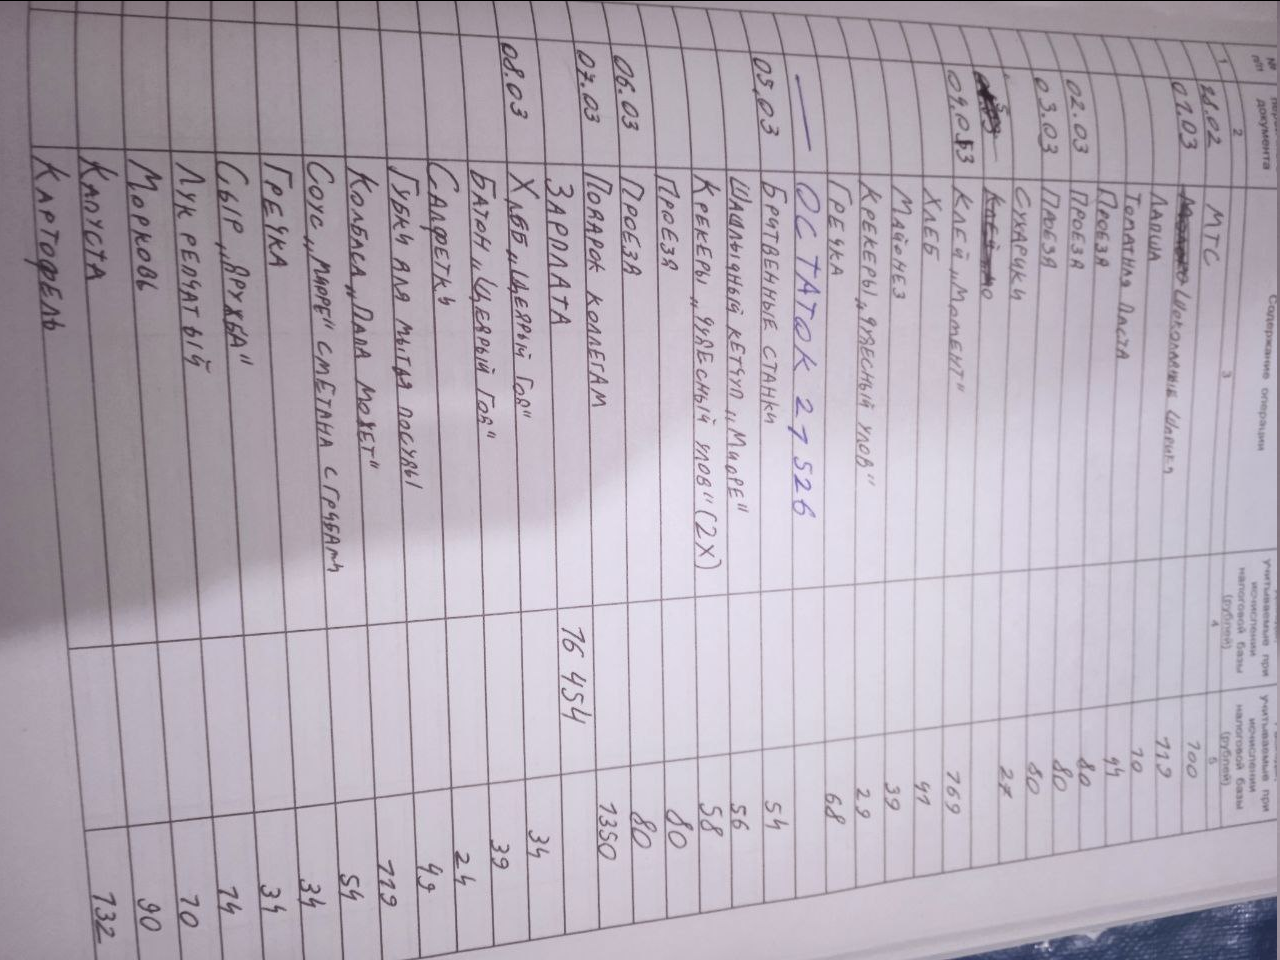 № п/п документа Содержание операции учитываемые при исчислении налоговой базы (рублей) учитываемые при исчислении налоговой базы (рублей)
1 2 3 4 5
28.02 МТС 100
01.03 Шоколадные шарики 119
Лапша 10
Томатная паста 44
Проезд 80
02.03 Проезд 80
03.03 Проезд 80
Сухарики 27
04.03 Клей „Момент" 169
Хлеб 41
Майонез 39
Крекеры „Чудесный улов" 29
Гречка 68
— Остаток 27 526
05.03 Бритвенные станки 54
Шашлычный кетчуп „Mr.Ricco" 56
Крекеры „Чудесный улов" (2х) 58
Проезд 80
06.03 Проезд 80
07.03 Подарок коллегам 1350
Зарплата 16 454
08.03 Хлеб „Щедрый год" 34
Батон „Щедрый год" 39
Салфетки 24
Губки для мытья посуды 49
Колбаса „Папа может" 119
Соус сметана с грибами 54
Гречка 34
Сыр „Дружба" 34
Лук репчатый 14
Морковь 10
Капуста 90
Картофель 132